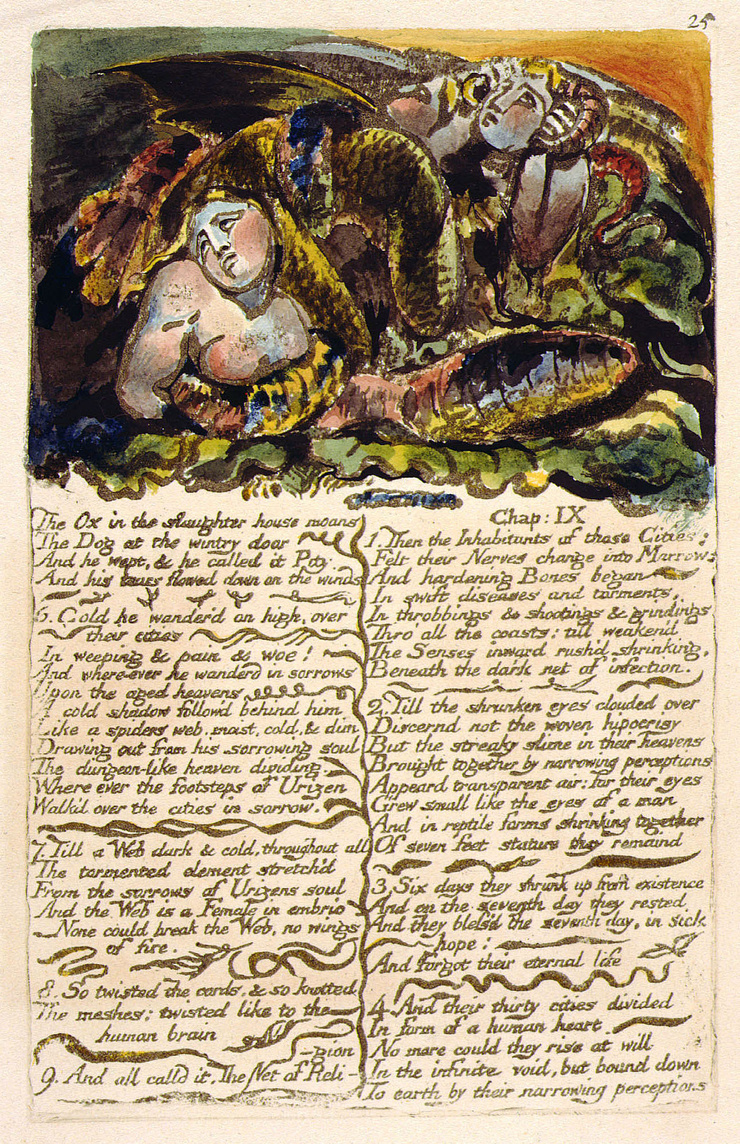 25
The Ox in the slaughter house moans
The Dog at the wintry door
And he wept, & he called it Pity
And his tears flowed down on the winds
6. Cold he wander'd on high, over
their cities
In weeping & pain & woe!
And where-ever he wanderd in sorrows
Upon the aged heavens
A cold shadow follow'd behind him
Like a spiders web, moist, cold, & dim
Drawing out from his sorrowing soul
The dungeon-like heaven dividing.
Where ever the footsteps of Urizen
Walk'd over the cities in sorrow.
7. Till a Web dark & cold, throughout all
The tormented element stretch'd
From the sorrows of Urizens soul
And the Web is a Female in embrio
None could break the Web, no wings
of fire.
8. So twisted the cords, & so knotted
The meshes: twisted like to the
human brain
-gion
9. And all calld it, The Net of Reli-
Chap: IX
1. Then the Inhabitants of those Cities:
Felt their Nerves change into Marrow
And hardening Bones began
In swift diseases and torments,
In throbbings & shootings & grindings
Thro' all the coasts; till weaken'd
The Senses inward rush'd shrinking,
Beneath the dark net of infection.
2. Till the shrunken eyes clouded over
Discernd not the woven hipocrisy
But the streaky slime in their heavens
Brought together by narrowing perceptions
Appeard transparent air; for their eyes
Grew small like the eyes of a man
And in reptile forms shrinking together
Of seven feet stature they remaind
3. Six days they shrunk up from existence
And on the seventh day they rested
And they bless'd the seventh day, in sick
hope:
And forgot their eternal life
4. And their thirty cities divided
In form of a human heart
No more could they rise at will
In the infinite void, but bound down
To earth by their narrowing perceptions